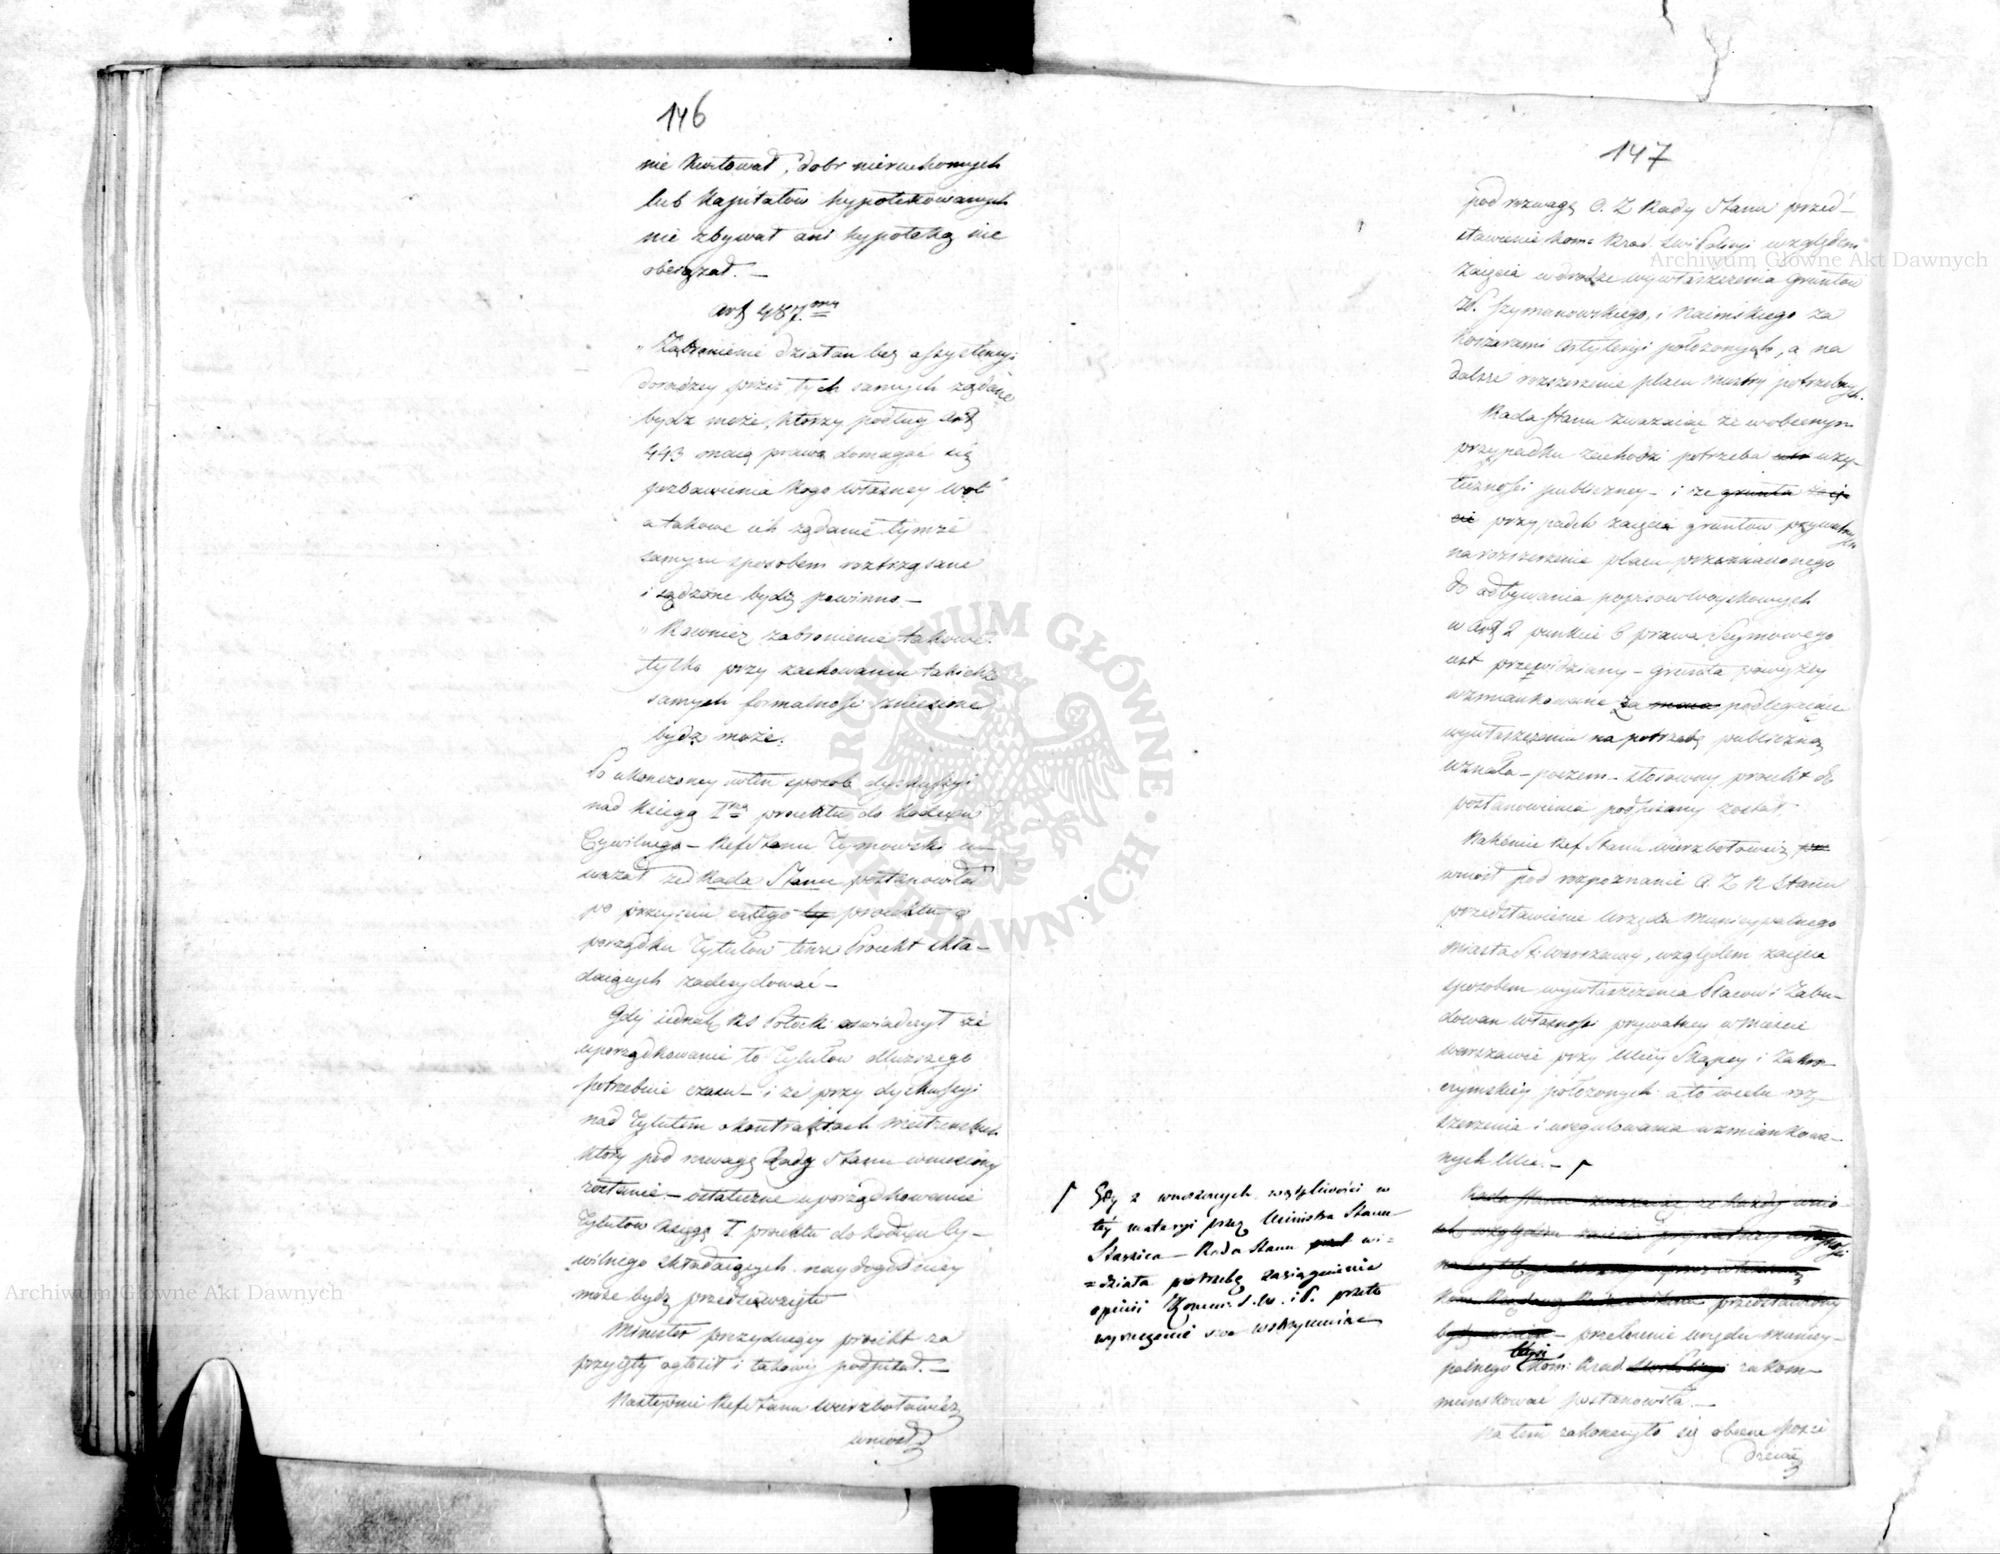 146
nie kwitował, dobr nieruchomych
lub kapitałow hypotekowanych
nie zbywał ani hypoteką nie
obciążał. —
Art 487.my
„Zabronienie działan bez assystencyi
doradzcy przez tych samych żądane
bydz może, ktorzy podług Art
443 maią prawo domagać się
pozbawienia kogo własney woli
a takowe ich żądanie tymże
samym sposobem roztrząsane
i sądzone bydź powinno. —
„Rownież zabronienie takowe
tylko przy zachowaniu takichże
samych formalności zniesione
bydź może.
Po ukonczoney w ten sposob dyskussyi
nad Księgą Iszą proiektu do kodexu
Cywilnego — Ref Stanu Tymowski u—
ważał że Rada Stanu postanowiła
po przyięciu całego proiektu o
porządku Tytułow tenże Proiekt skła—
daiących zadecydować —
Gdy iednak KS Potocki oświadczył że
uporządkowanie to Tytułow dłuższego
potrzebuie czasu — i że przy dyskussyi
nad Tytułem o kontraktach
ktory pod rozwagę Rady Stanu wniesiony
zostanie — ostateczne uporządkowanie
Tytułow Księgę I proiektu do kodexu Cy—
wilnego składaiących naydogodniey
może bydź przedsięwzięte
Minister prezyduiący proiekt za
przyięty ogłosił i takowy podpisał. —
Następnie Ref Stanu Wierzbołowicz
wniosł
147
pod rozwagę O. Z Rady Stanu przed—
stawienie Kom: Rząd. S. W i Policyi względem
zaięcia w drodze wywłaszczenia Gruntow
W. Szymanowskiego, i Naimskiego za
koszarami Artyleryi położonych, a na
dalsze rozszerzenie placu Mustry potrzebnych.
Rada Stanu zważaiąc że w obecnym
przypadku zachodzi potrzeba uży—
teczności publiczney — i że grunta
przypadek zaięcia gruntow prywatnych
na rozszerzenie placu przeznaczonego
do odbywania popisow woyskowych
w Art 2 punkcie 6 prawa Seymowego
iest przewidziany — Grunta powyżey
wzmiankowane za podlegaiące
wywłaszczeniu na potrzebę publiczną
uznała — poczem stosowny proiekt do
postanowienia podpisany został.
Nakoniec Ref Stanu Wierzbołowicz
wniosł pod rozpoznanie O. Z R Stanu
przedstawienie Urzędu Municypalnego
Miasta St. Warszawy, względem zaięcia
sposobem wywłaszczenia Placow i Zabu—
dowan własności prywatney w Mieście
Warszawie przy Ulicy Skąpey i Zakro—
czymskiey położonych a to w celu roz—
szerzenia i uregulowania wzmiankowa—
nych Ulic. —
Gdy z wnoszonych wątpliwości w
tey materyi przez Ministra Stanu
Staszica — Rada Stanu wi=
=działa potrzebę zasiągnienia
opinii Kommis. S. W. i P. przeto
wyrzeczenie swe wstrzymuiąc
Rada Stanu zważaiąc że każdy wnio
sek względem zaięcia prywatney
Kom Rządową Radzie Stanu przedstawiony
— przesłanie Urzędu Municy—
palnego teyże Kom: Rząd zakom—
munikować postanowiła. —
Na tem zakonczyło się obecne posie
dzenie
Archiwum Główne Akt Dawnych
Archiwum Główne Akt Dawnych
ARCHIWUM GŁÓWNE AKT DAWNYCH